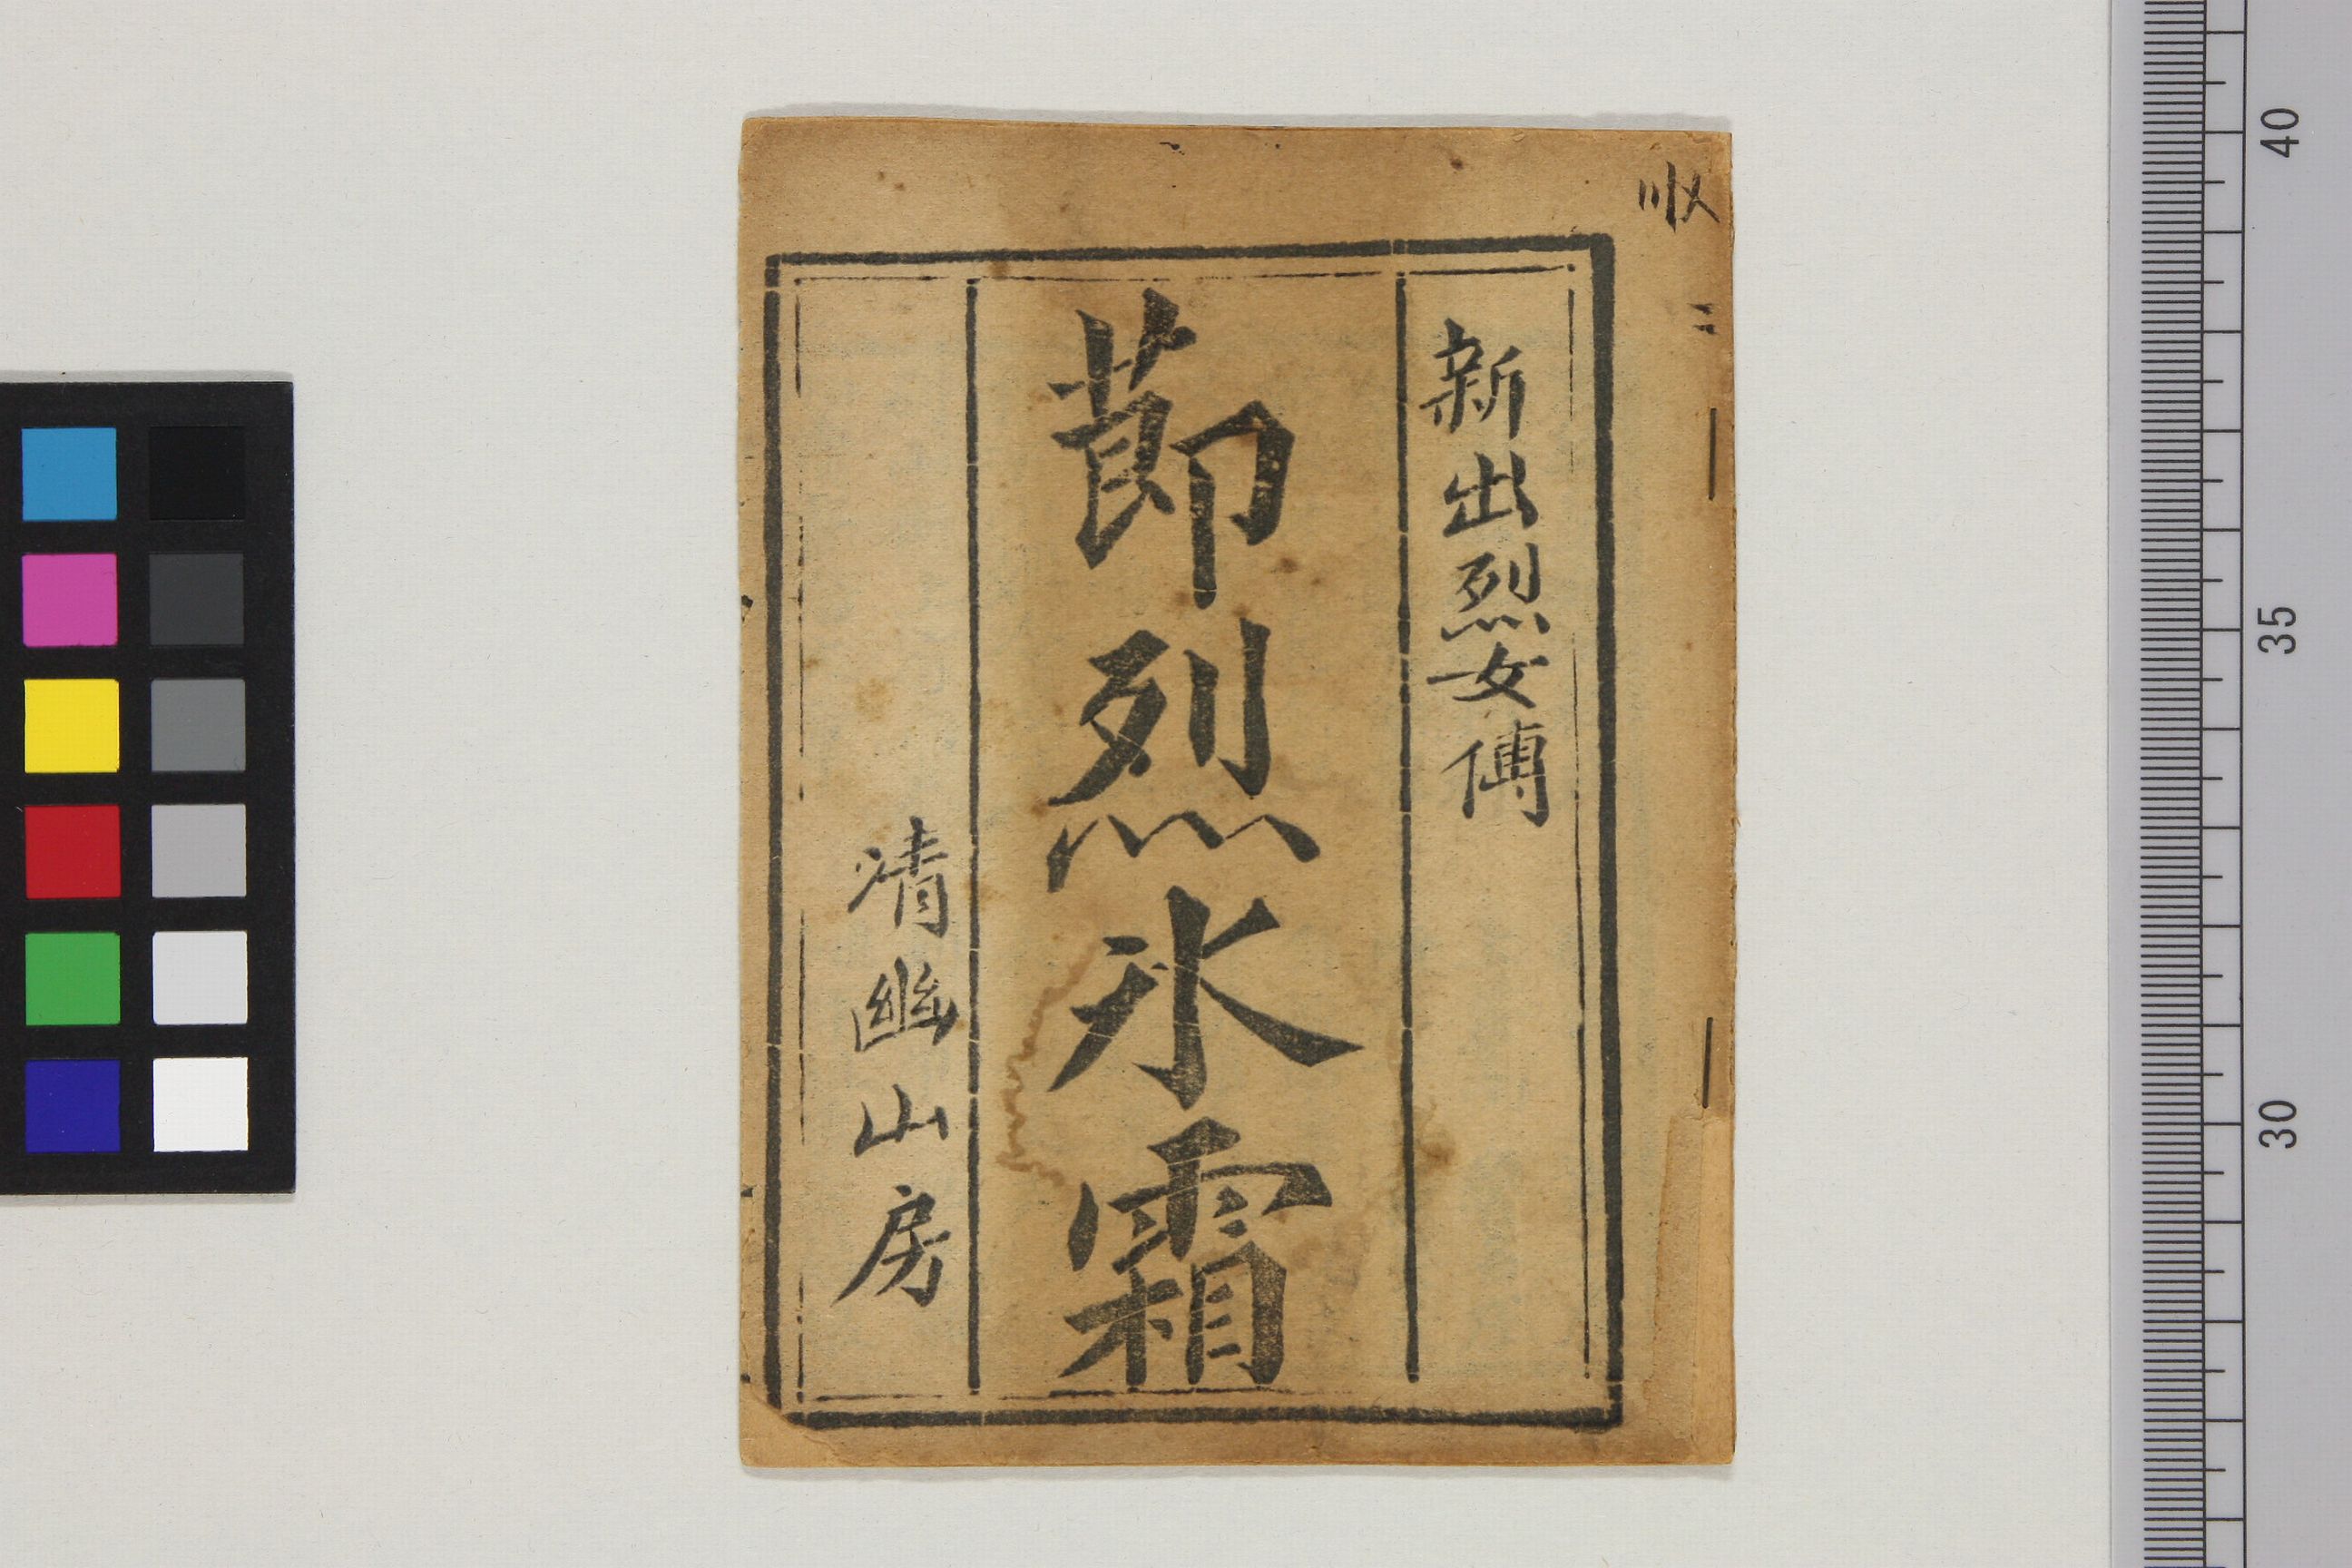 新出烈女傳
莭烈氷霜
清幽山房
40
35
30